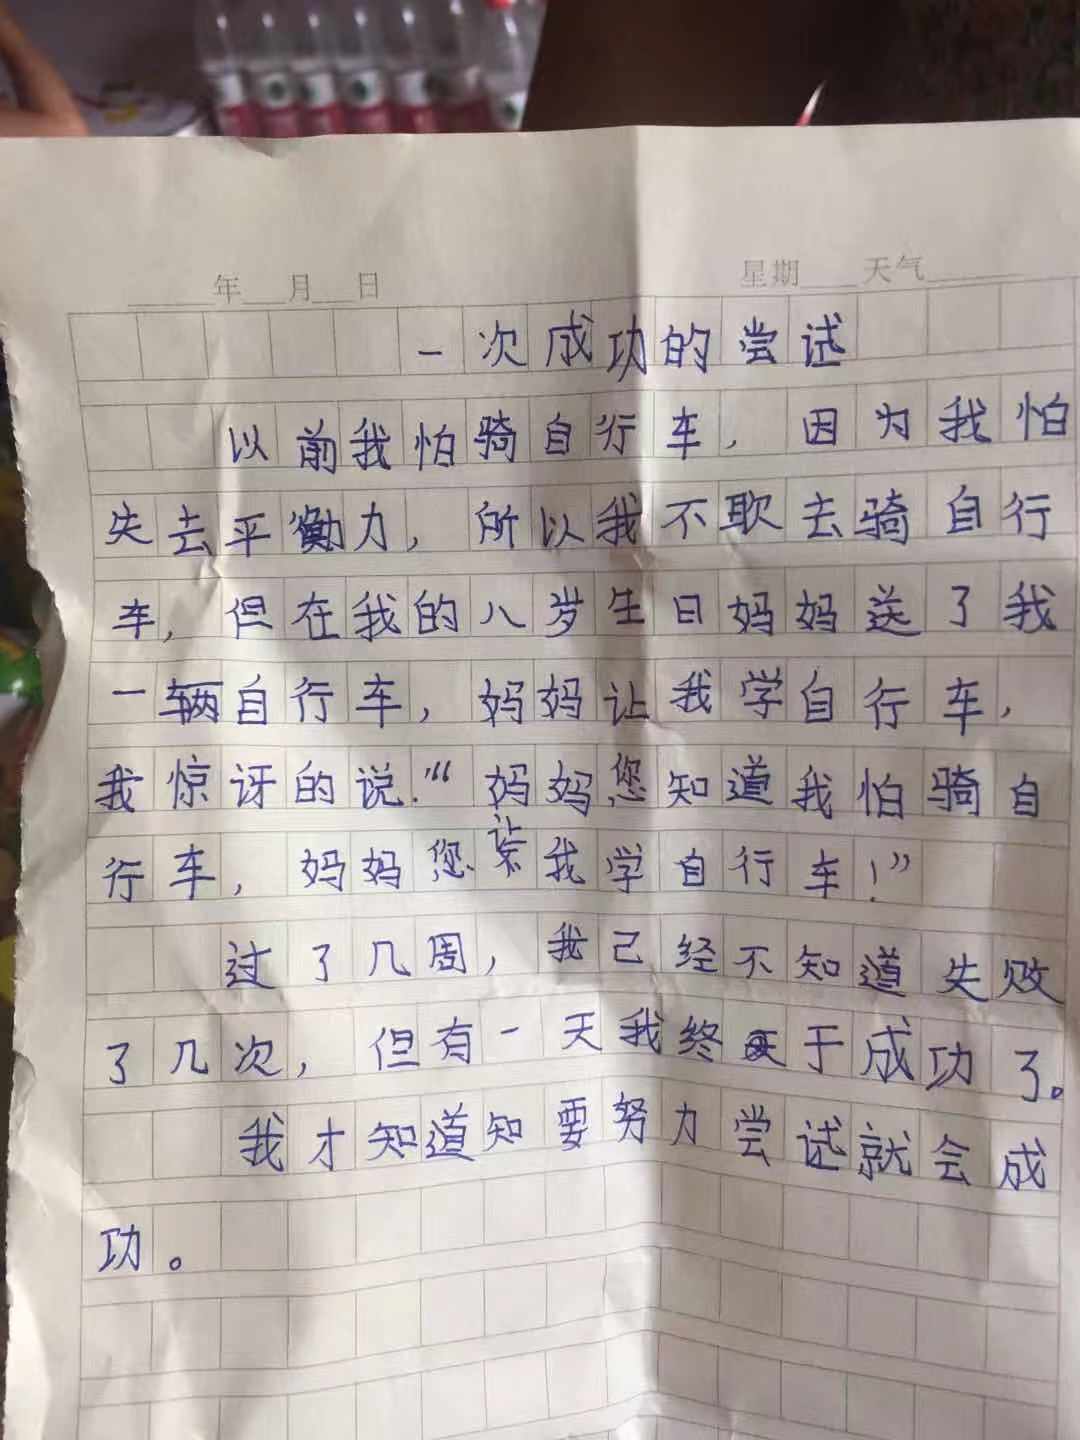 年 月 日 星期 天气
一次成功的尝试
以前我怕骑自行车，因为我怕
失去平衡力，所以我不敢去骑自行
车，但在我的八岁生日妈妈送了我
一辆自行车，妈妈让我学自行车，
我惊讶的说：“妈妈您知道我怕骑自
行车，妈妈您让我学自行车！”
过了几周，我己经不知道失败
了几次，但有一天我终于成功了。
我才知道知要努力尝试就会成
功。